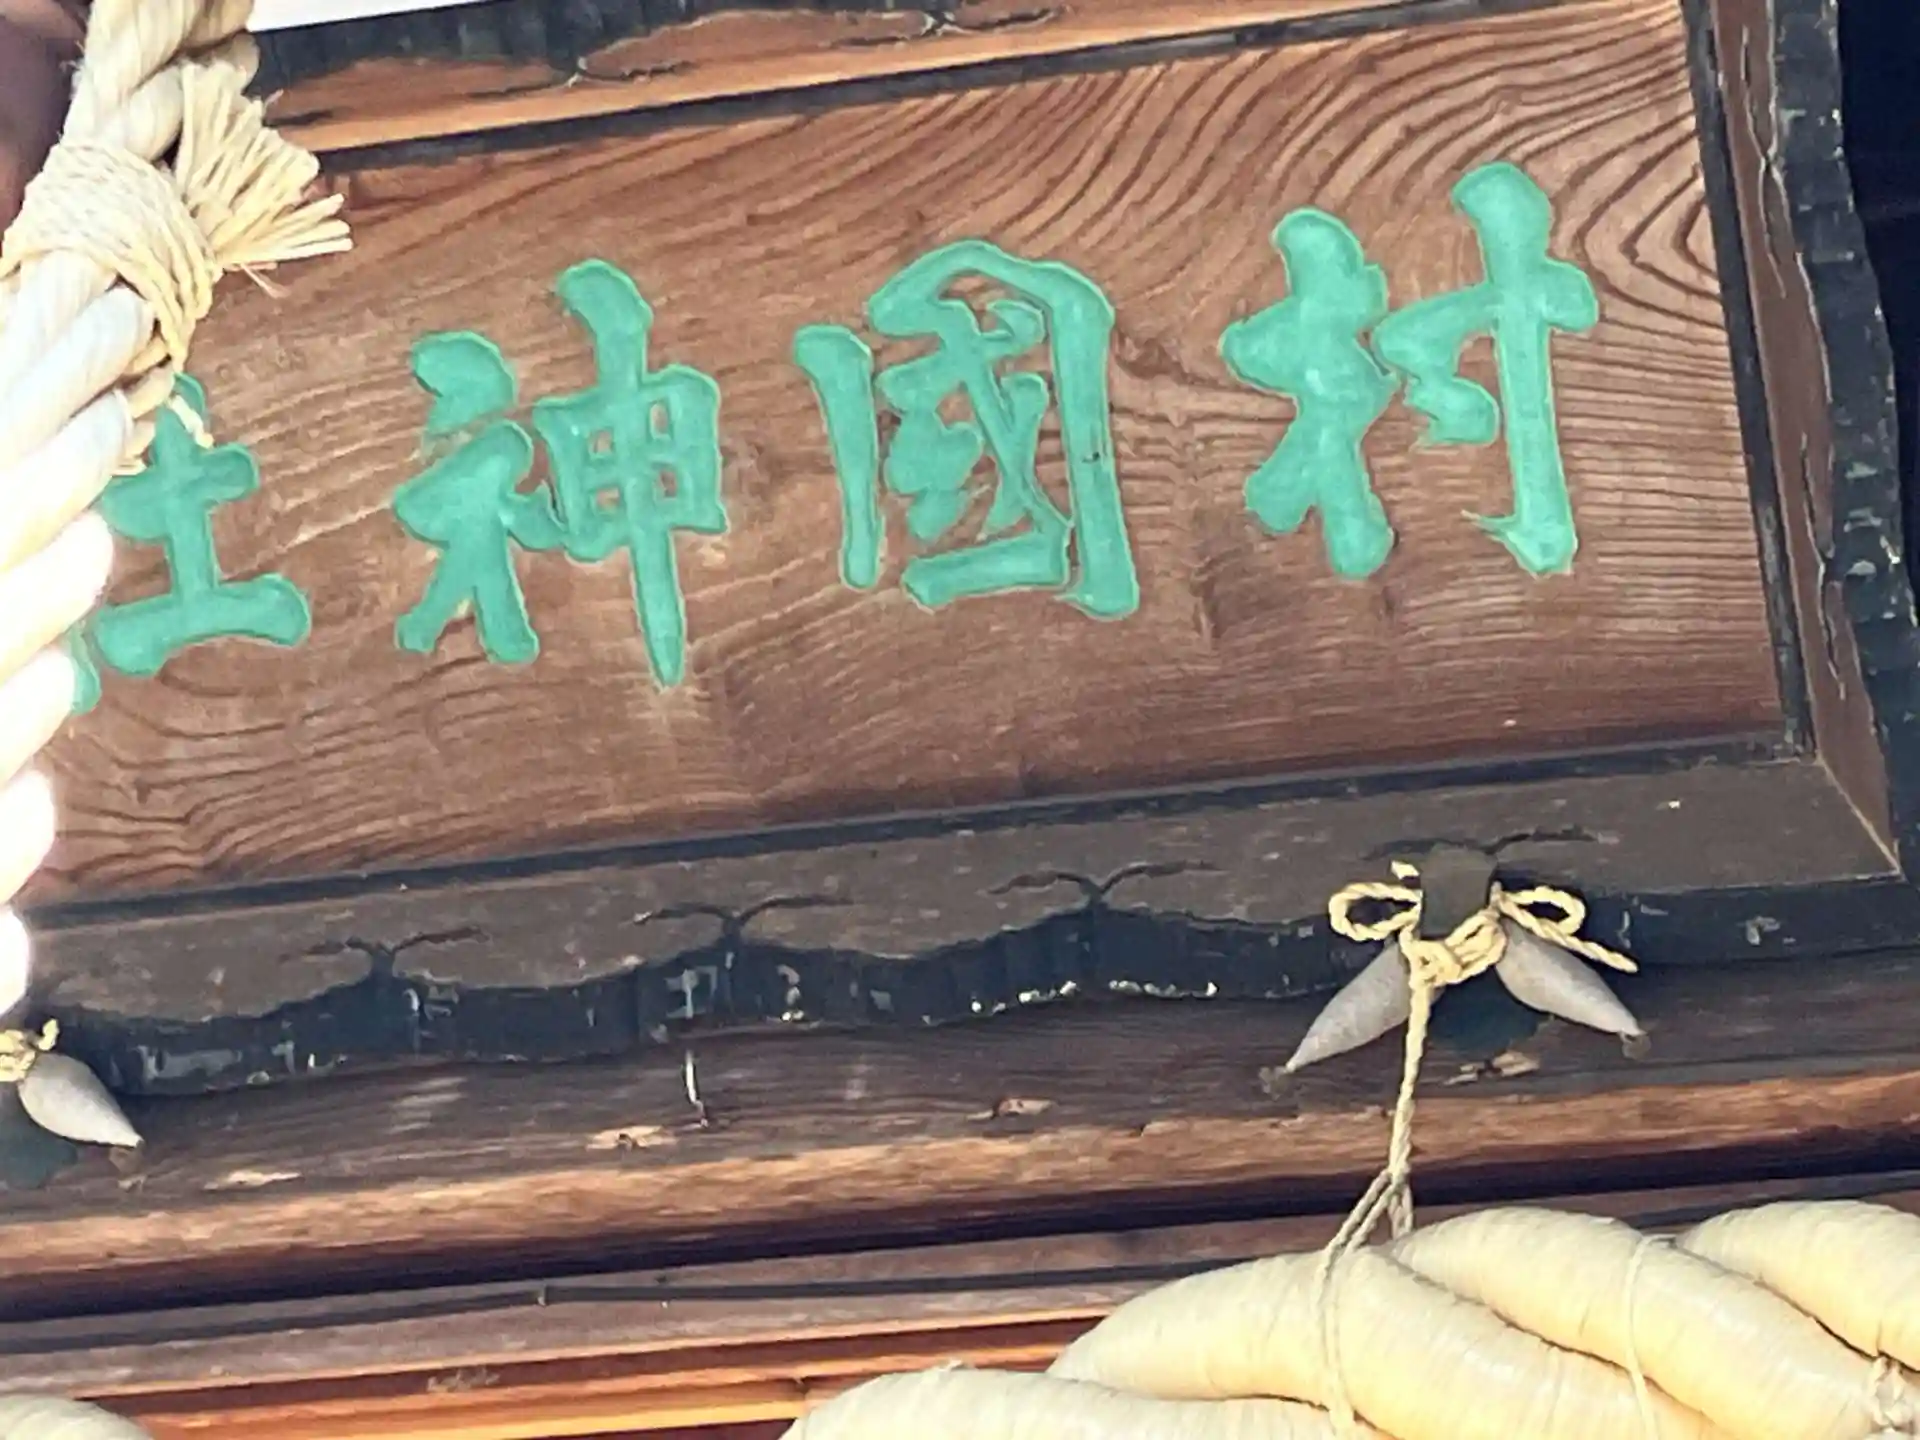 村國神社